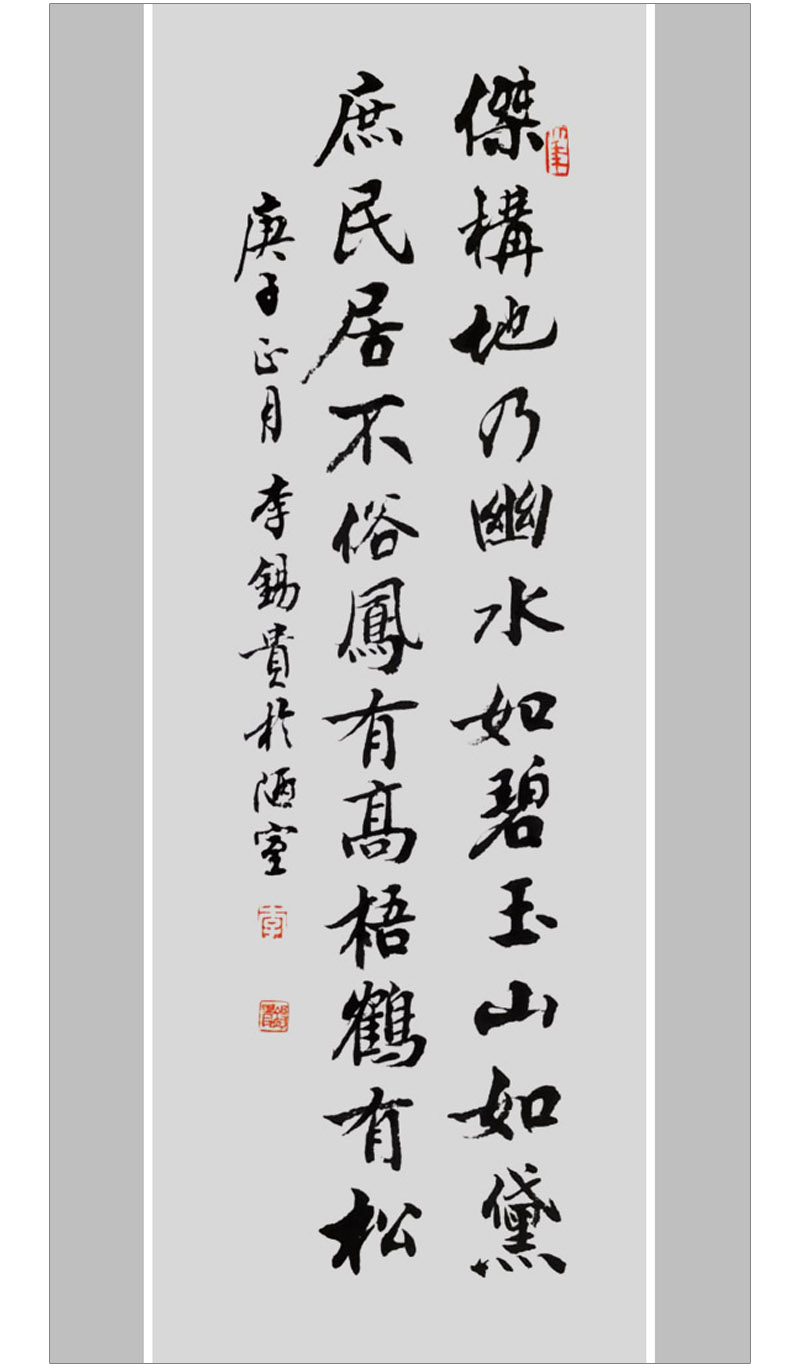 傑構地乃幽水如碧玉山如黛
庶民居不俗鳳有高梧鶴有松
庚子正月李錫貴於陋室